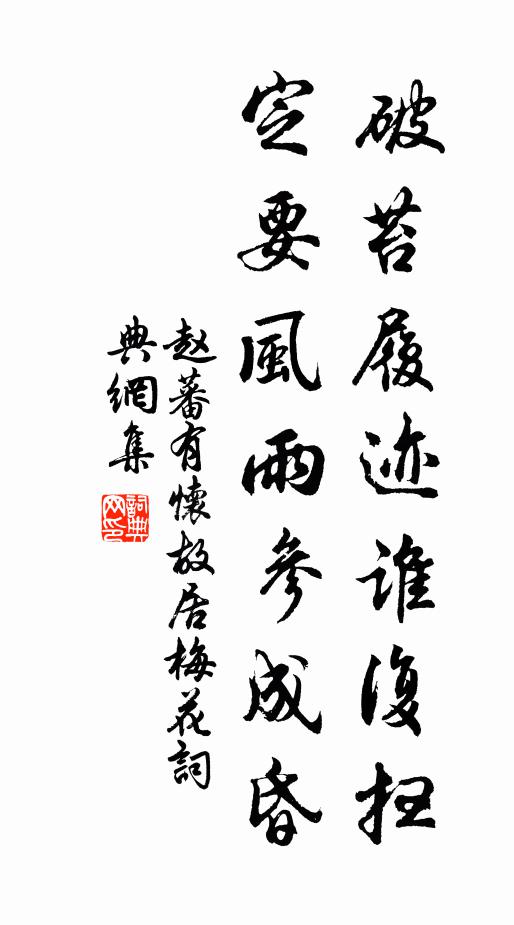 破苔履迹谁復扫
定要風雨參成昏
赵蕃有懷故居梅花詞
典網集
詞典
网印